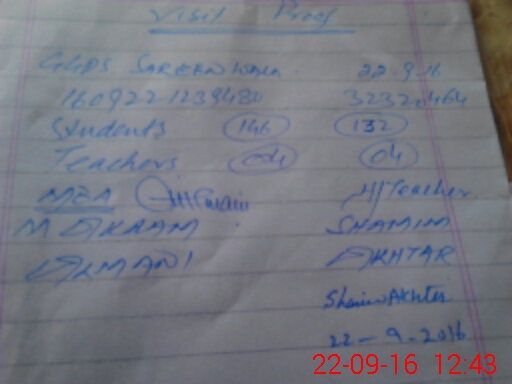 Visit Proof
GGPS SAREENWALA 22.9.16
1609221239480 32320464
Students 146 132
Teachers 04 04
MEA H/Teacher
M AKRAM SHAMIM
ALMANI AKHTAR
Shamim Akhter
22-9-2016
22-09-16 12:43